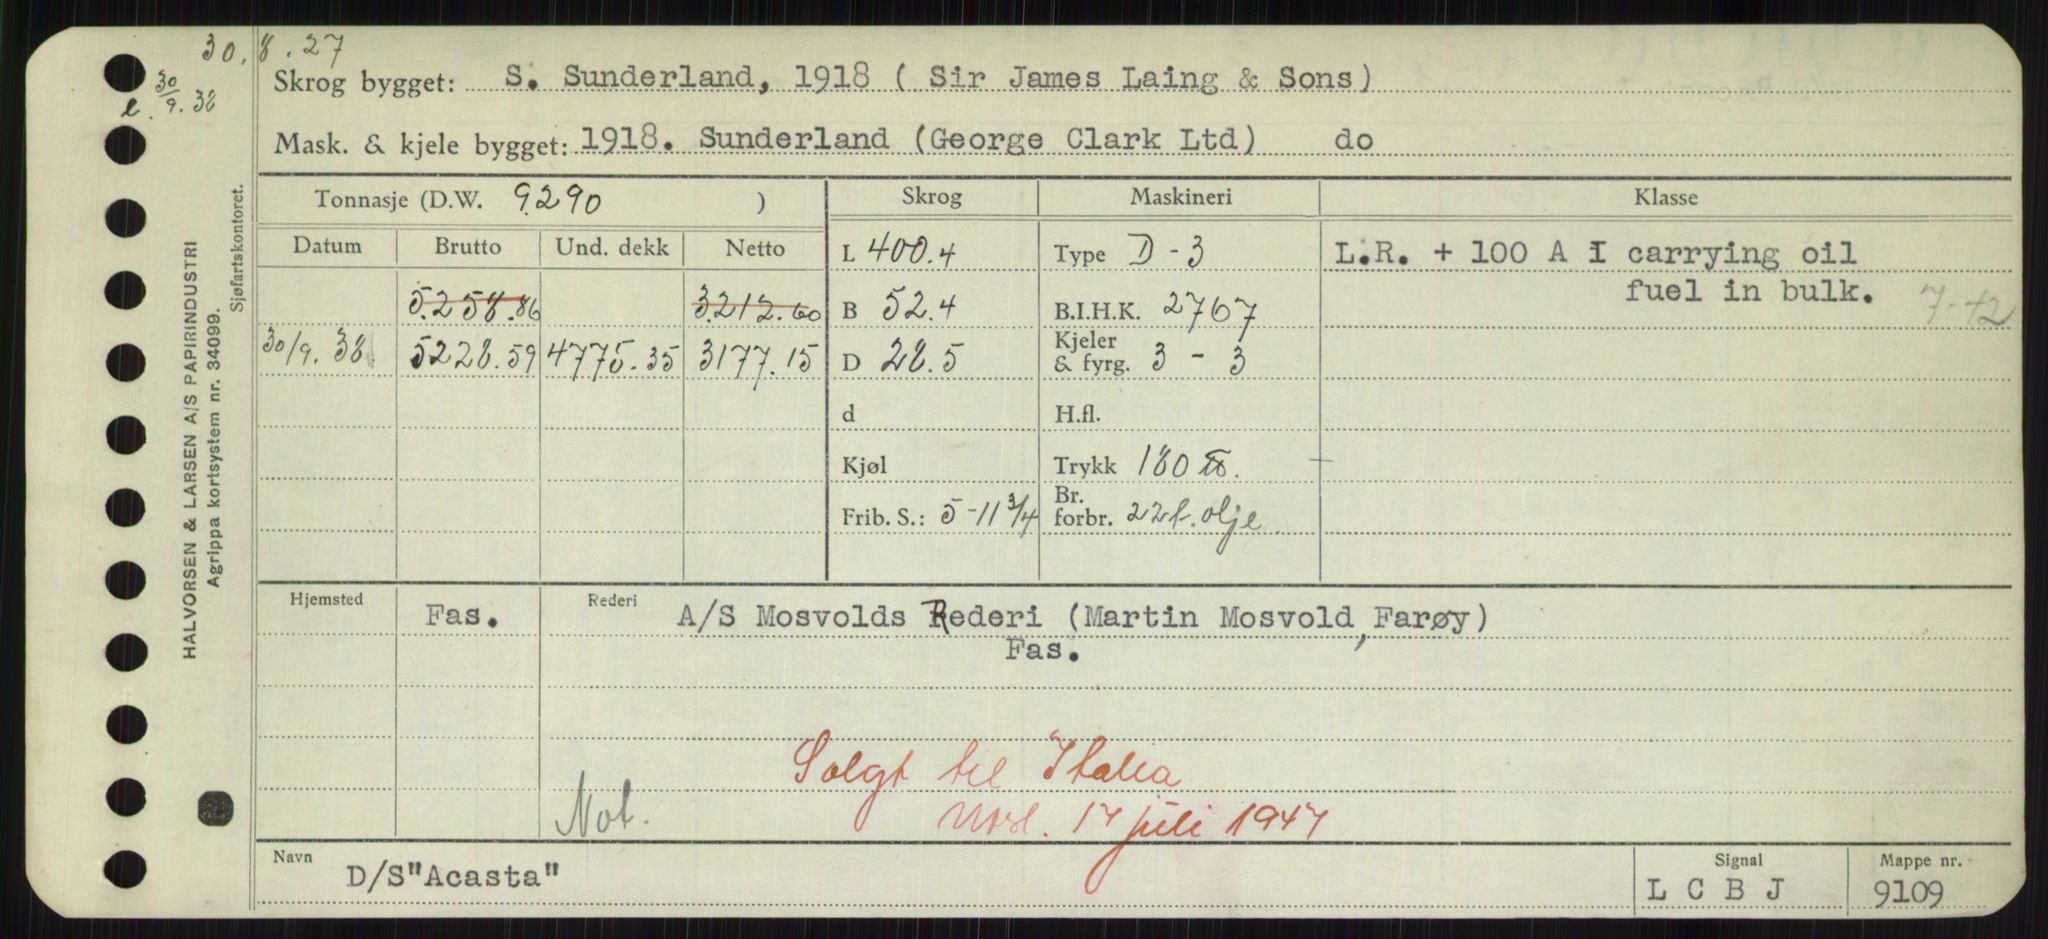 30.8.27
30/9.38
Skrog bygget: S. Sunderland, 1918 ( Sir James Laing & Sons)
Mask. & kjele bygget: 1918. Sunderland (George Clark Ltd) do
HALVORSEN & LARSEN A/S PAPIRINDUSTRI
Agrippa kortsystem nr. 34099.
Sjøfartskontoret.
Tonnasje (D.W. 9290 ) Skrog Maskineri Klasse
Datum Brutto Und. dekk Netto L 400.4 Type D - 3 L.R. + 100 A I carrying oil
5.258.86 3.212.60 B 52.4 B.I.H.K. 2767 fuel in bulk. 7-42
30/9.38 5228.59 4775.35 3177.15 D 28.5 Kjeler & fyrg. 3 - 3
d H.fl.
Kjøl Trykk 180 ℔.
Frib. S.: 5-11 3/4 Br. forbr. 22t. olje
Hjemsted Fas. Rederi A/S Mosvolds Rederi (Martin Mosvold, Farøy)
Fas.
Solgt til Italia
Not. 17 juli 1947
Navn D/S"Acasta" Signal L C B J Mappe nr. 9109